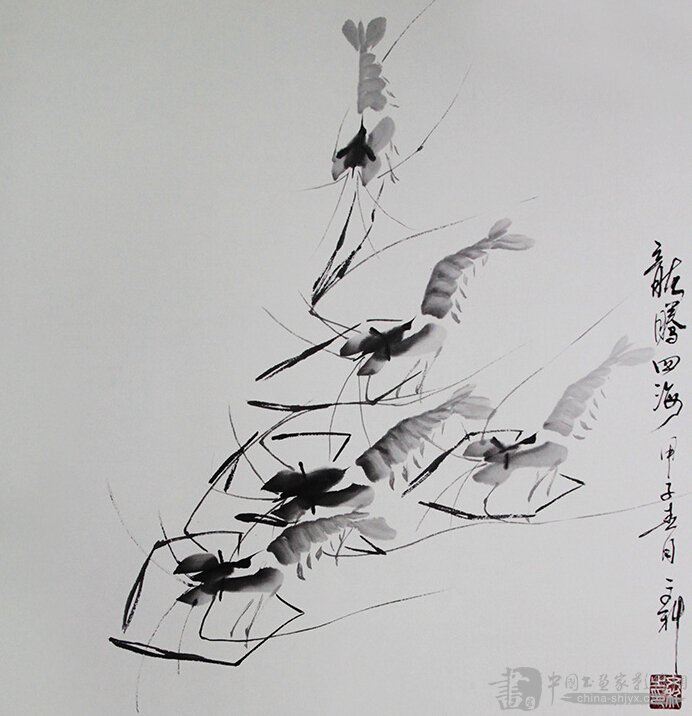 龍騰四海 甲子春月
中国书画家
china-shjyx.com